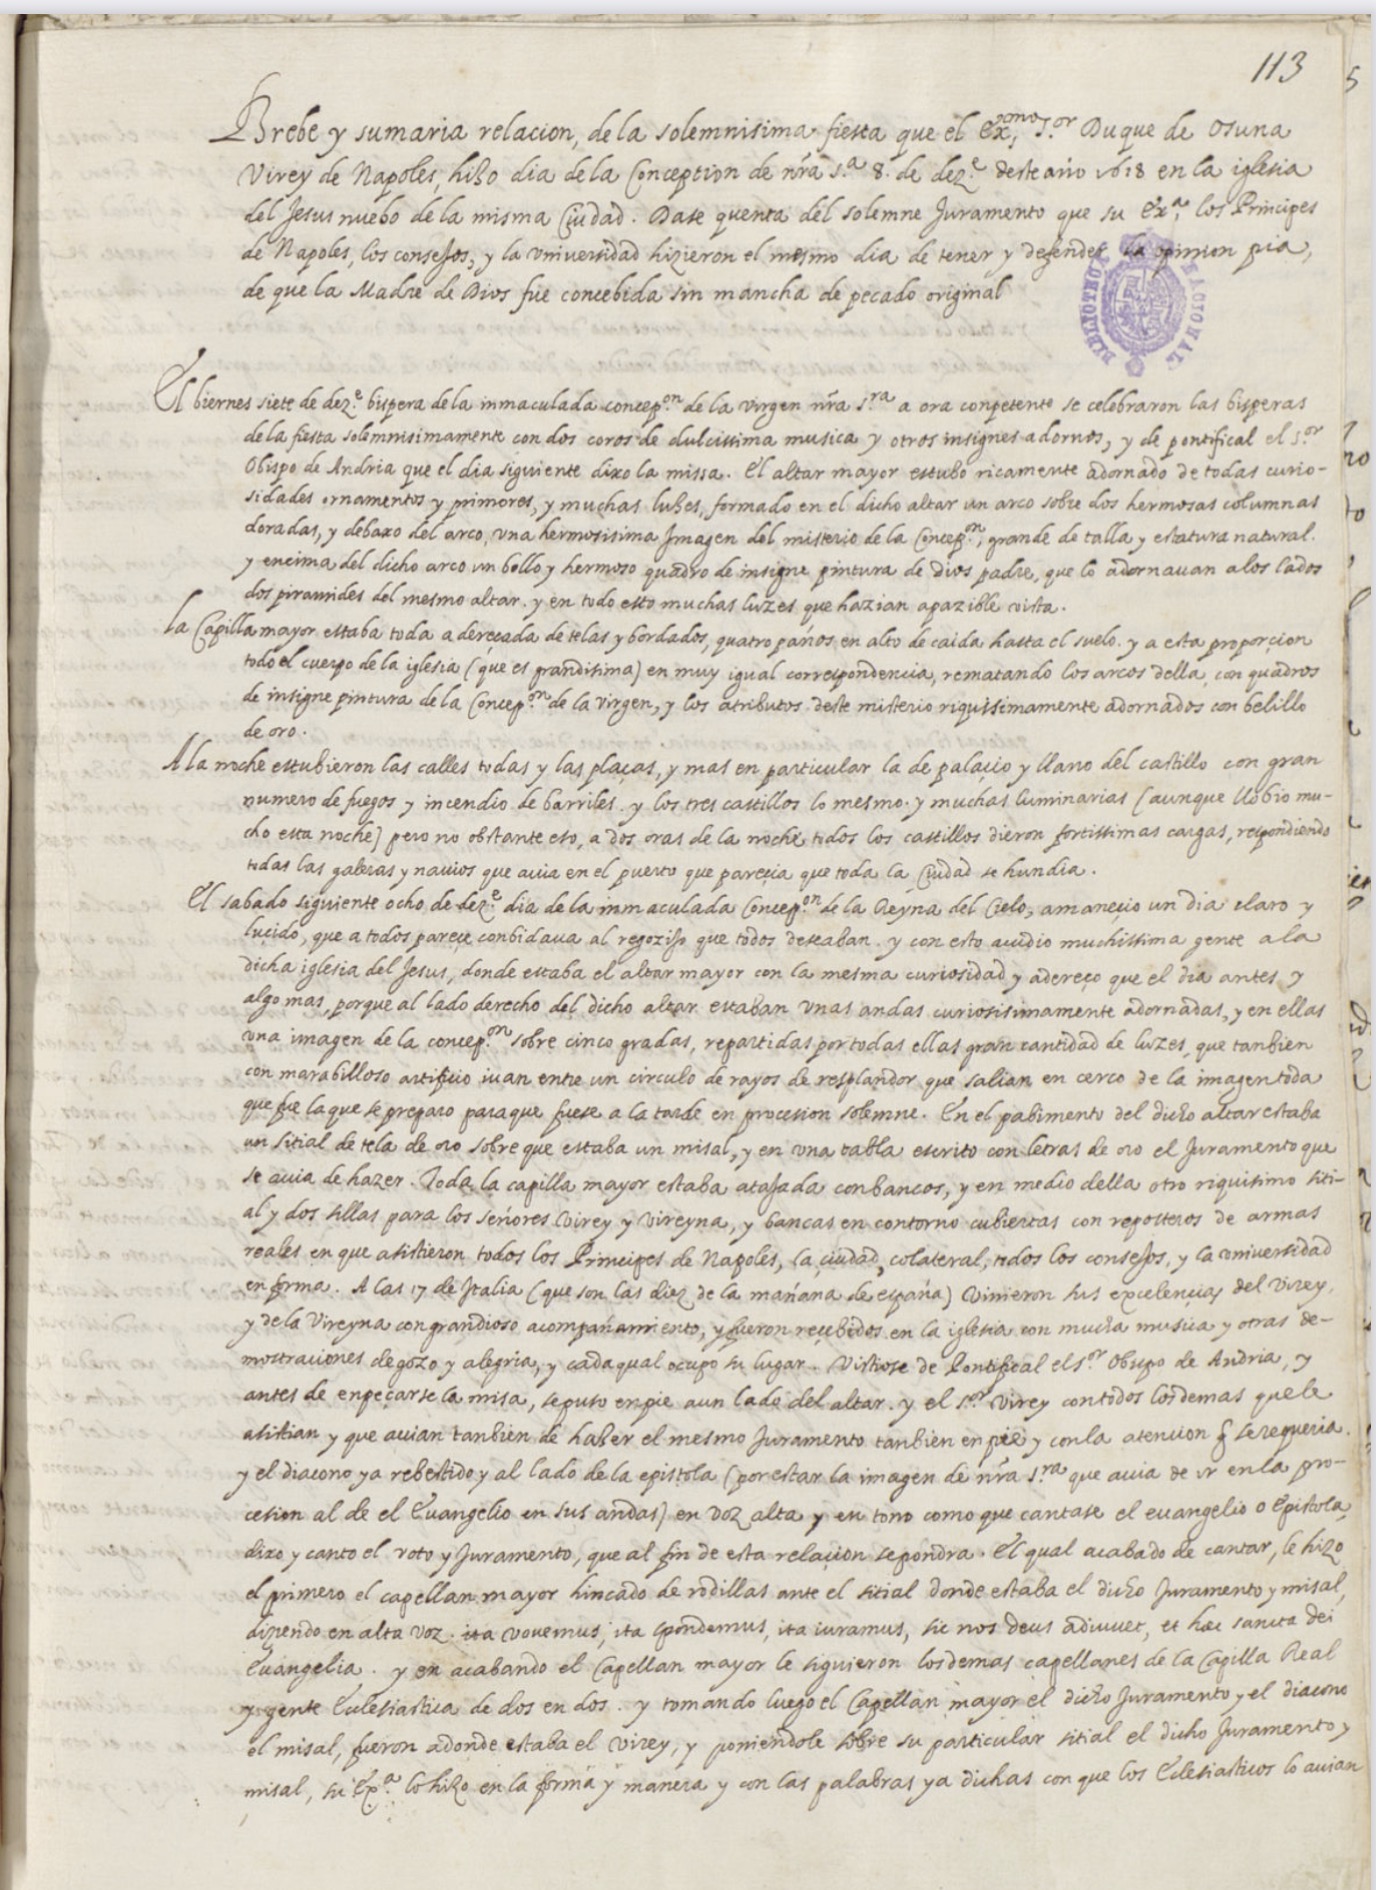 113
Brebe y sumaria relacion, de la solemnisima fiesta que el Exmo, Sor Duque de Osuna
Virey de Napoles, hizo dia de la Conception de nra Sa 8. de deze deste año 1618 en la iglesia
del Jesus nuebo de la misma Ciudad. Dase quenta del solemne Juramento que su Exa, los Principes
de Napoles, los consejos, y la Universidad hizieron el mesmo dia de tener y defender la opinion pia,
de que la Madre de Dios fue concebida sin mancha de pecado original
BIBLIOTHECA NACIONAL
El biernes siete de deze bispera de la inmaculada concepon de la virgen nra sra a ora conpetente se celebraron las bisperas
de la fiesta solemnisimamente con dos coros de dulcissima musica y otros insignes adornos, y de pontifical el Sor
Obispo de Andria que el dia siguiente dixo la missa. El altar mayor estubo ricamente adornado de todas curio-
sidades ornamentos y primores, y muchas luzes, formado en el dicho altar un arco sobre dos hermosas columnas
doradas, y debaxo del arco, una hermosisima Imagen del misterio de la Concepon, grande de talla y estatura natural.
y encima del dicho arco un bello y hermoso quadro de insigne pintura de Dios padre, que lo adornauan a los lados
dos piramides del mesmo altar. y en todo esto muchas luzes que hazian apazible vista.
La Capilla mayor estaba toda adereçada de telas y bordados, quatro paños en alto de caida hasta el suelo. y a esta proporçion
todo el cuerpo de la iglesia (que es grandisima) en muy igual correspondencia, rematando los arcos della, con quadros
de insigne pintura de la Concepon de la virgen, y los atributos deste misterio riquisimamente adornados con belillo
de oro.
A la noche estubieron las calles todas y las plaças, y mas en particular la de palaçio y llano del castillo con gran
numero de fuegos y incendio de barriles. y los tres castillos lo mesmo. y muchas luminarias (aunque llobio mu-
cho esta noche) pero no obstante eso, a dos oras de la noche todos los castillos dieron fortissimas cargas, respondiendo
todas las galeras y nauios que auia en el puerto que pareçia que toda la Ciudad se hundia.
El sabado siguiente ocho de deze dia de la inmaculada Concepon de la Reyna del Cielo, amaneçio un dia claro y
luçido, que a todos pareçe conbidaua al regozijo que todos deseaban. y con esto acudio muchissima gente a la
dicha iglesia del Jesus, donde estaba el altar mayor con la mesma curiosidad y adereço que el dia antes y
algo mas, porque al lado derecho del dicho altar estaban unas andas curiosisimamente adornadas, y en ellas
una imagen de la concepon sobre cinco gradas, repartidas por todas ellas gran cantidad de luzes, que tanbien
con marabilloso artificio iuan entre un circulo de rayos de resplandor que salian en cerco de la imagen toda
que fue la que se preparo para que fuese a la tarde en procesion solemne. En el pabimento del dicho altar estaba
un sitial de tela de oro sobre que estaba un misal, y en una tabla escrito con letras de oro el Juramento que
se auia de hazer. Toda la capilla mayor estaba atajada con bancos, y en medio della otro riquisimo siti-
al y dos sillas para los señores Virey y Vireyna, y bancas en contorno cubiertas con reposteros de armas
reales en que asistieron todos los Principes de Napoles, la çiudad, colateral, todos los consejos, y la universidad
en forma. A las 17 de Italia (que son las diez de la mañana de españa) Vinieron sus excelençias del Virey,
y de la Vireyna con grandioso acompañamiento, y fueron reçebidos en la iglesia con mucha musica y otras de-
mostraciones de gozo y alegria, y cada qual ocupo su lugar. Vistiose de Pontifical el sor Obispo de Andria, y
antes de enpeçarse la misa, se puso en pie a un lado del altar. y el sor Virey con todos los demas que le
asistian y que auian tanbien de hazer el mesmo Juramento tanbien en pie y con la atencion q se requeria.
y el diacono ya rebestido y al lado de la epistola (por estar la imagen de nra sra que auia de ir en la pro-
cesion al de el Euangelio en sus andas) en voz alta y en tono como que cantase el euangelio o Epistola,
dixo y canto el voto y Juramento, que al fin de esta relaçion se pondra. El qual acabado de cantar, le hizo
el primero el capellan mayor hincado de rodillas ante el sitial donde estaba el dicho Juramento y misal,
diziendo en alta voz. ita vouemus, ita spondemus, ita iuramus, sic nos deus adiuuet, et hæc sancta dei
Euangelia. y en acabando el Capellan mayor le siguieron los demas capellanes de la Capilla Real
y gente Eclesiastica de dos en dos. y tomando luego el Capellan mayor el dicho Juramento, y el diacono
el misal, fueron adonde estaba el Virey, y poniendole sobre su particular sitial el dicho Juramento y
misal, su Exa lo hizo en la forma y manera y con las palabras ya dichas con que los Eclesiasticos lo auian